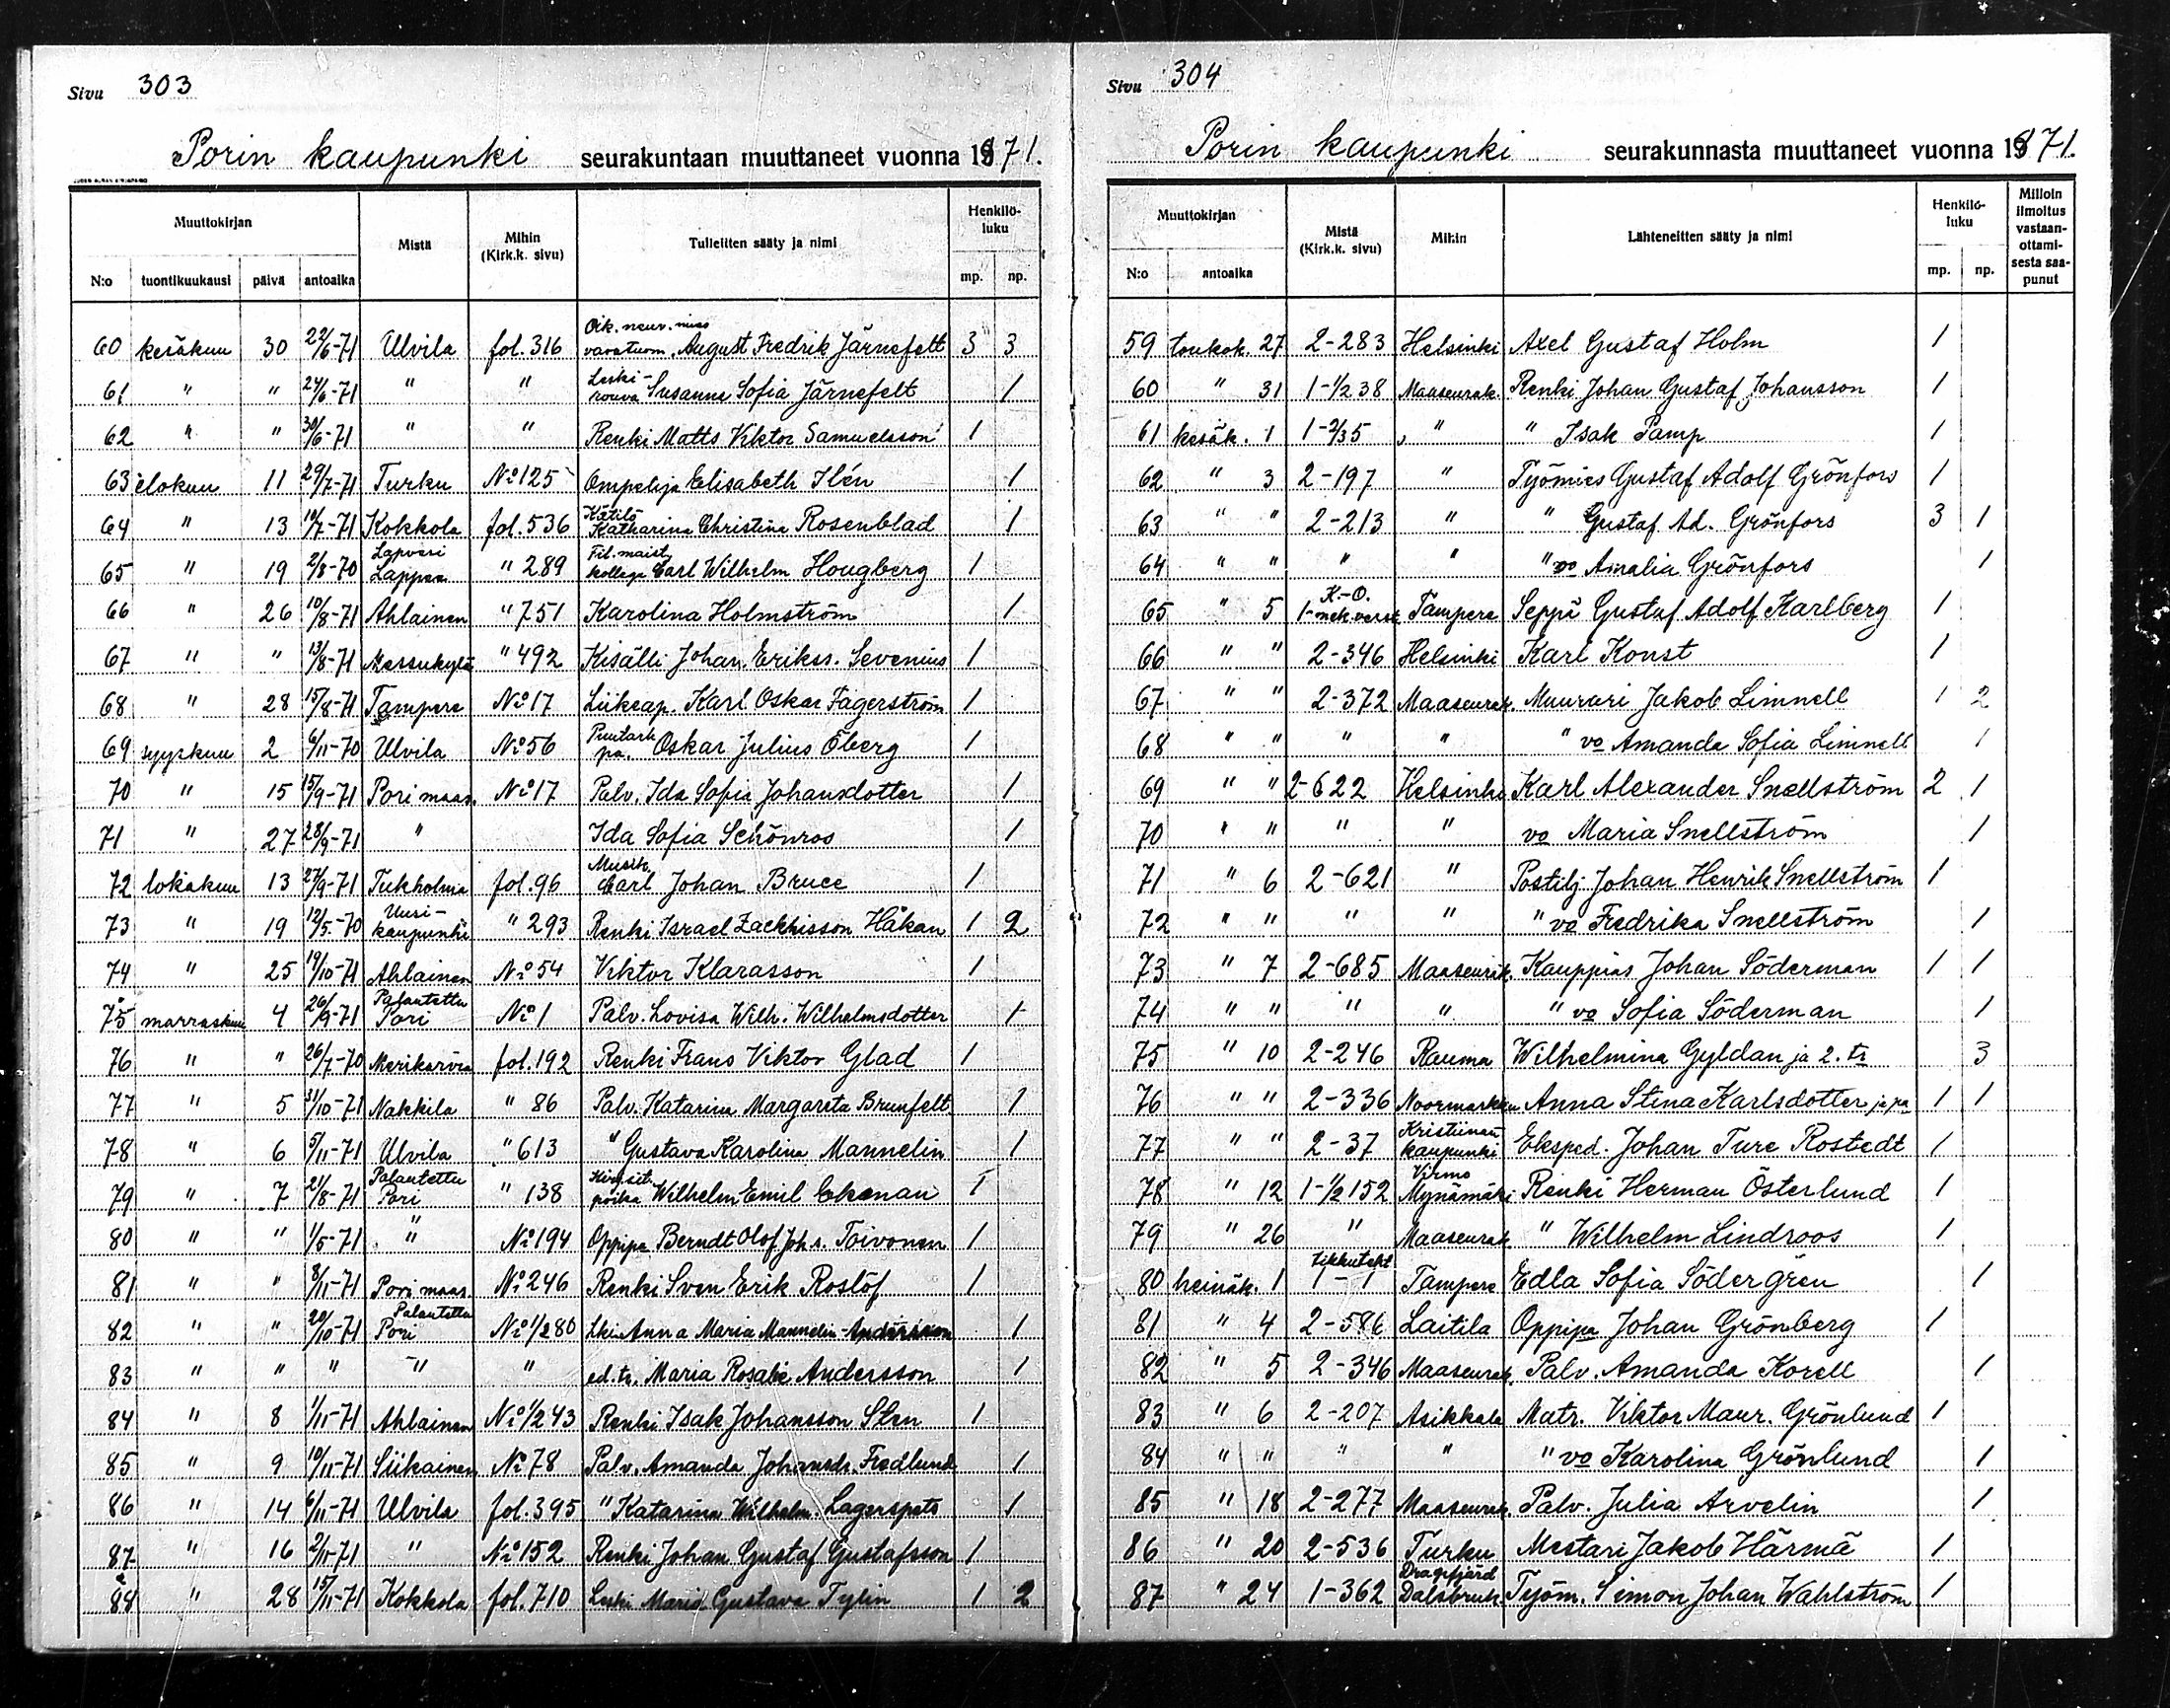 Sivu 303
Porin kaupunki seurakuntaan muuttaneet vuonna 1871.
Muuttokirjan Mistä Mihin (Kirk.k. sivu) Tulleitten sääty ja nimi Henkilö-luku
N:o tuontikuukausi päivä antoaika mp. np.
60 kesäkuu 30 22/6-71 Ulvila fol. 316 Oik. neuv. mies varatuom. August Fredrik Järnefelt 3 3
61 " " 24/6-71 " " Leski-rouva Susanna Sofia Järnefelt 1
62 " " 30/6-71 " " Renki Matts Viktor Samuelsson 1
63 elokuu 11 29/7-71 Turku No 125 Ompelija Elisabeth Ilén 1
64 " 13 10/7-71 Kokkola fol. 536 Kätilö Katharina Christina Rosenblad 1
65 " 19 2/8-70 Lapväri Lappea " 289 Fil. maist. kollega Carl Wilhelm Hougberg 1
66 " 26 10/8-71 Ahlainen " 751 Karolina Holmström 1
67 " " 13/8-71 Messukylä " 492 Kisälli Johan Erikss. Sevenius 1
68 " 28 15/8-71 Tampere No 17 Liikeap. Karl Oskar Fagerström 1
69 syyskuu 2 6/11-70 Ulvila No 56 Puutarh pa. Oskar Julius Öberg 1
70 " 15 15/9-71 Pori maas. No 17 Palv. Ida Sofia Johansdotter 1
71 " 27 28/9-71 " Ida Sofia Schönros 1
72 lokakuu 13 27/9-71 Tukholma fol. 96 Musik. Carl Johan Bruce 1
73 " 19 12/5-70 Uusi-kaupunki " 293 Renki Israel Zachrisson Håkan 1 2
74 " 25 19/10-71 Ahlainen No 54 Viktor Klarasson 1
75 marraskuu 4 26/9-71 Palautettu Pori No 1 Palv. Lovisa Wilh. Wilhelmsdotter 1
76 " " 26/7-70 Merikarvia fol. 192 Renki Frans Viktor Glad 1
77 " 5 31/10-71 Nakkila " 86 Palv. Katarina Margareta Brunfelt 1
78 " 6 5/11-71 Ulvila " 613 " Gustava Karolina Mannelin 1
79 " 7 21/8-71 Palautettu Pori " 138 poika Wilhelm Emil Ekenan 1
80 " " 1/5-71 " No 194 Oppipa Berndt Olof Joh.s. Toivonen 1
81 " " 8/11-71 Pori maas. No 246 Renki Sven Erik Roslöf 1
82 " " 20/10-71 Palautettu Pori No 1/280 Lki Anna Maria Mannelin-Andersson 1
83 " " " " " ed. tr. Maria Rosalie Andersson 1
84 " 8 1/11-71 Ahlainen No 1/243 Renki Isak Johansson Sten 1
85 " 9 10/11-71 Siikainen No 78 Palv. Amanda Johansdr. Fredlund 1
86 " 14 6/11-71 Ulvila fol. 395 " Katarina Wilhelm. Lagerspets 1
87 " 16 2/11-71 " No 152 Renki Johan Gustaf Gustafsson 1
88 " 28 15/11-71 Kokkola fol. 710 Leski Maria Gustava Tylin 1 2
Sivu 304
Porin kaupunki seurakunnasta muuttaneet vuonna 1871.
Muuttokirjan Mistä (Kirk.k. sivu) Mihin Lähteneitten sääty ja nimi Henkilö-luku Milloin ilmoitus vastaan-ottami-sesta saa-punut
N:o antoaika mp. np.
59 toukok. 27 2-283 Helsinki Axel Gustaf Holm 1
60 " 31 1-1/2 38 Maaseurak. Renki Johan Gustaf Johansson 1
61 kesäk. 1 1-2/35 " " Isak Pamp 1
62 " 3 2-197 " Työmies Gustaf Adolf Grönfors 1
63 " " 2-213 " " Gustaf Ad. Grönfors 3 1
64 " " " " " vo Amalia Grönfors 1
65 " 5 K.-O. 1-mek. verst. Tampere Seppä Gustaf Adolf Karlberg 1
66 " " 2-346 Helsinki Karl Konst 1
67 " " 2-372 Maaseurak. Muurari Jakob Limnell 1 2
68 " " " " " vo Amanda Sofia Limnell 1
69 " " 2-622 Helsinki Karl Alexander Snellström 2 1
70 " " " " vo Maria Snellström 1
71 " 6 2-621 " Postilj. Johan Henrik Snellström 1
72 " " " " " vo Fredrika Snellström 1
73 " 7 2-685 Maaseurak. Kauppias Johan Söderman 1 1
74 " " " " " vo Sofia Söderman 1
75 " 10 2-246 Rauma Wilhelmina Gyldan ja 2. tr 3
76 " " 2-336 Noormarkku Anna Stina Karlsdotter ja pa 1 1
77 " " 2-37 Kristiinan kaupunki Eksped. Johan Ture Rostedt 1
78 " 12 1-1/2 152 Virmo Mynämäki Renki Herman Österlund 1
79 " 26 " Maaseurak. " Wilhelm Lindroos 1
80 heinäk. 1 tikkuteht 1-1 Tampere Edla Sofia Södergren 1
81 " 4 2-586 Laitila Oppipa Johan Grönberg 1
82 " 5 2-346 Maaseurak. Palv. Amanda Korell 1
83 " 6 2-207 Asikkala Matr. Viktor Maur. Grönlund 1
84 " " " " " vo Karolina Grönlund 1
85 " 18 2-277 Maaseurak. Palv. Julia Arvelin 1
86 " 20 2-536 Turku Mestari Jakob Härmä 1
87 " 24 1-362 Dragsfjärd Dalsbruk Työm. Simon Johan Wahlström 1